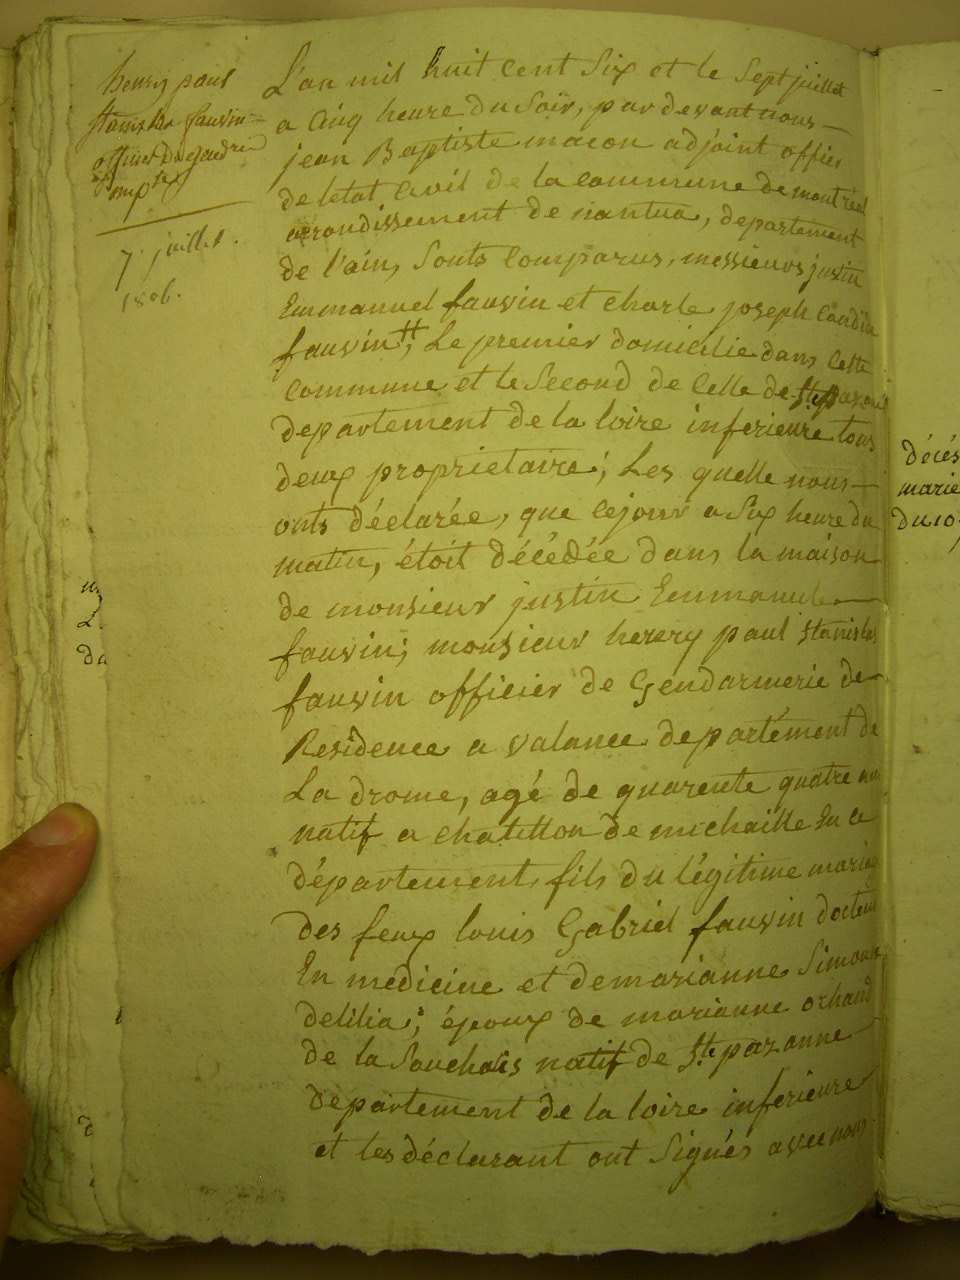 henry paul
Stanislas fauvin
officier de gendrie
7 juillet
1806.
L'an mil huit cent Six et le Sept juillet
a Cinq heure du Soir, par devant nous
jean Baptiste macon adjoint officier
de letat Civil de la commune de montreal
arondissement de nantua, departement
de l'ain, Sonts Comparus, messieurs justin
Emmanuel fauvin et charle joseph Candide
fauvin ; Le premier domicilie dans Cette
Commune et le Second de Celle de Ste pazanne
departement de la loire inferieure tous
deux proprietaire ; Les quelle nous
onts déclarée, que Cejour a Six heure du
matin, étoit décédée dans la maison
de monsieur justin Emmanuel
fauvin ; monsieur henry paul Stanislas
fauvin officier de Gendarmerie de
Residence a valance departément de
La drome, agé de quarente quatre ans
natif a chatillon de michaille En ce
département, fils du légitime mariage
des feux louis Gabriel fauvin docteur
En medicine et demarianne Simonne
delilia ; époux de marianne orhand
de la Souchais natif de Ste pazanne
département de la loire inferieure
et les déclarant ont Signés avec nous
décés
marie
du 10